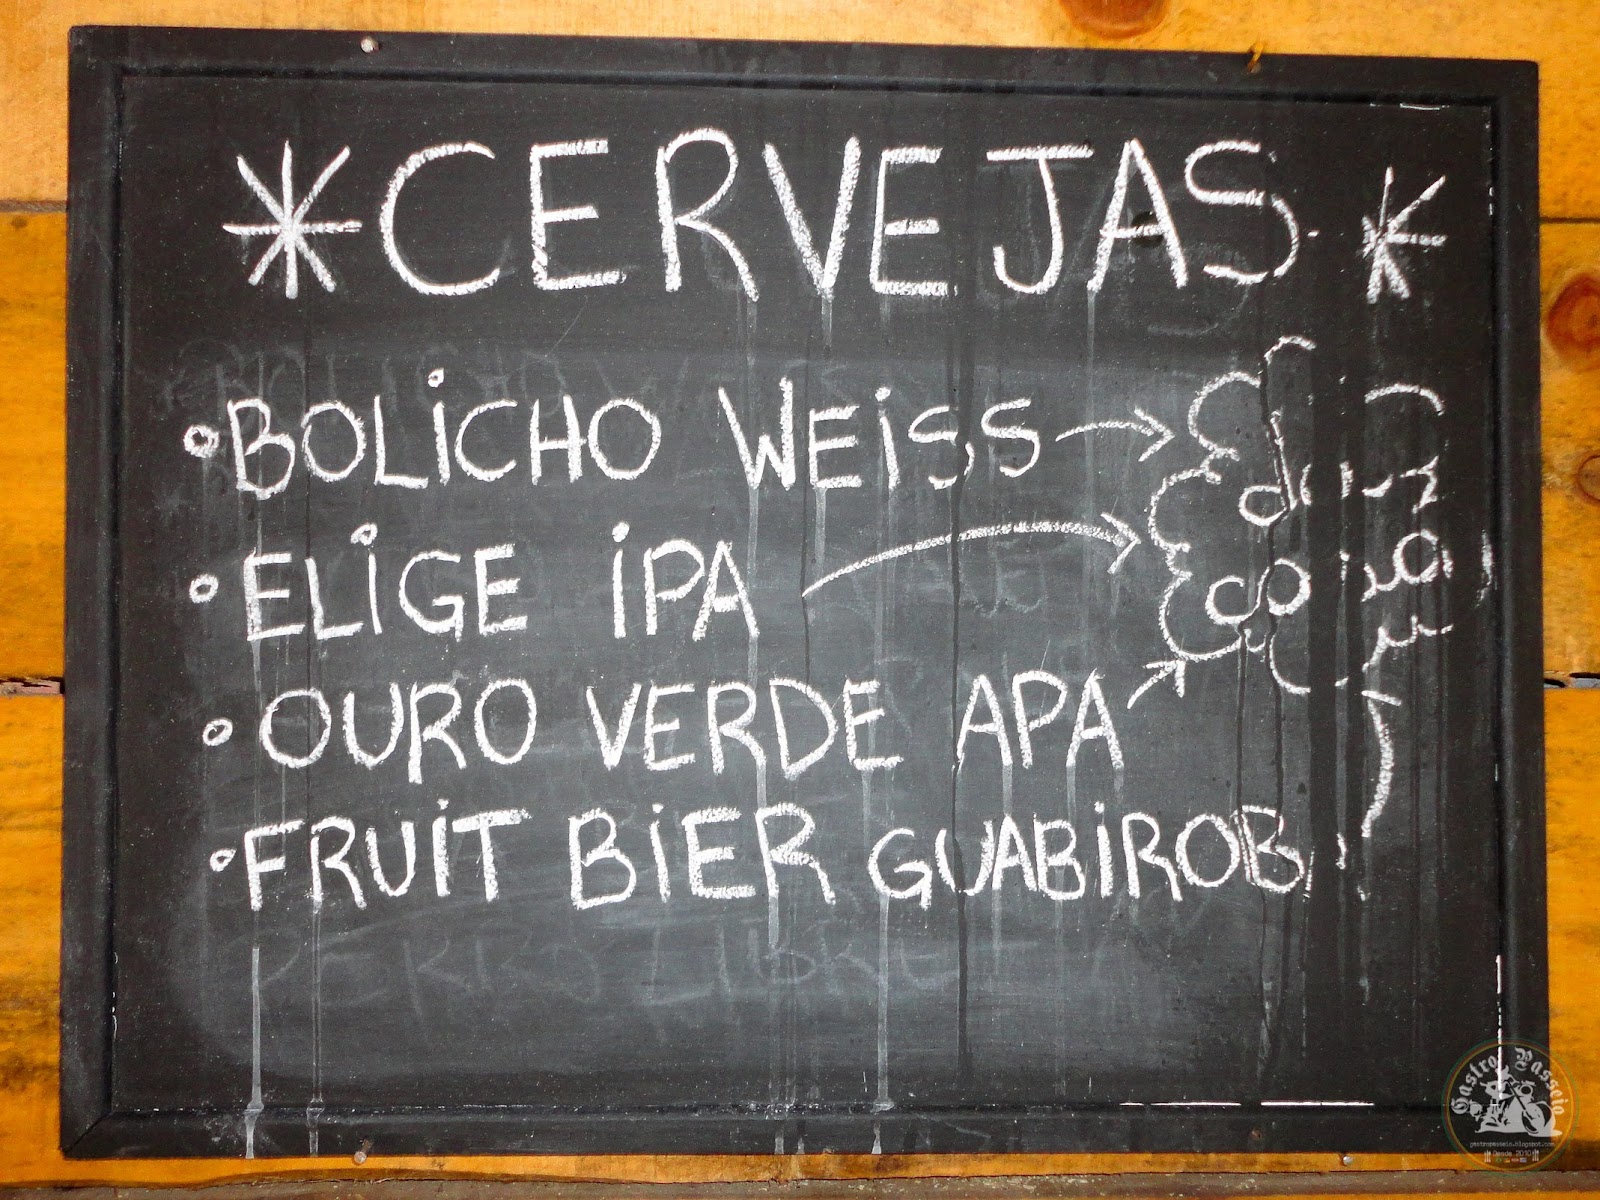 * CERVEJAS *
• BOLICHO WEISS →
• ELIGE IPA →
• OURO VERDE APA →
• FRUIT BIER GUABIROB
Gastro Passeio
gastropasseio.blogspot.com
Desde 2010